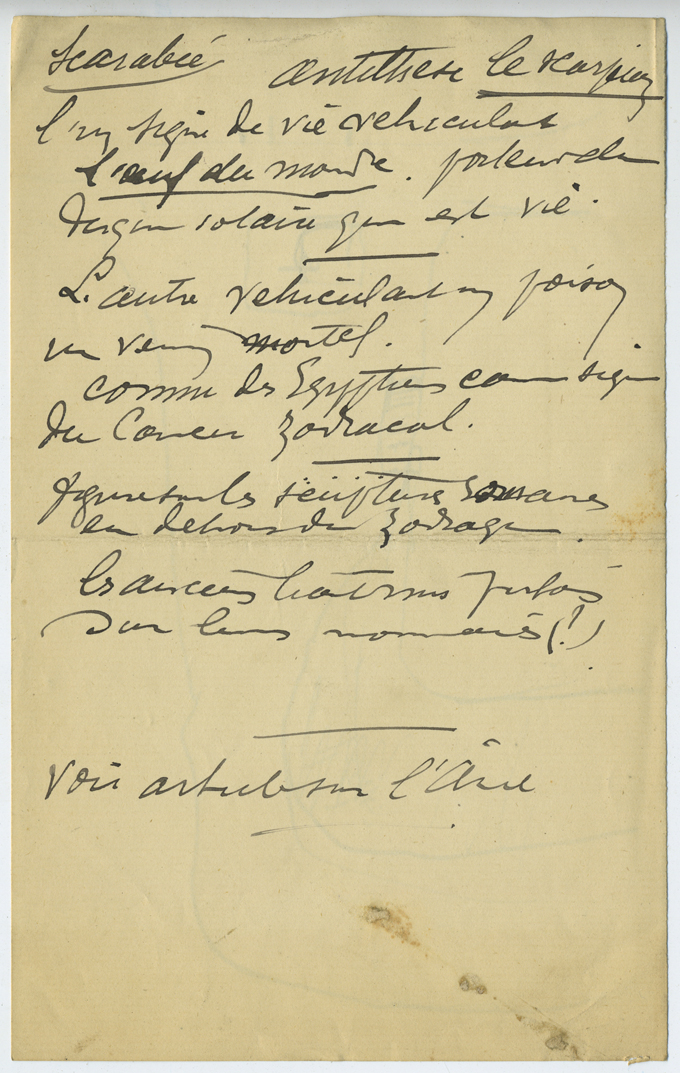 Scarabée antithèse le scorpion
l'un signe de vie véhiculant
L'œuf du monde. porteur du
disque solaire qui est vie.
L'autre véhiculant un poison
un venin mortel.
connu des Egyptiens comme signe
du Cancer zodiacal.
figure sur les sculptures romanes
en dehors du zodiaque.
les anciens
sur leurs monnaies (!)
voir article sur l'Âne